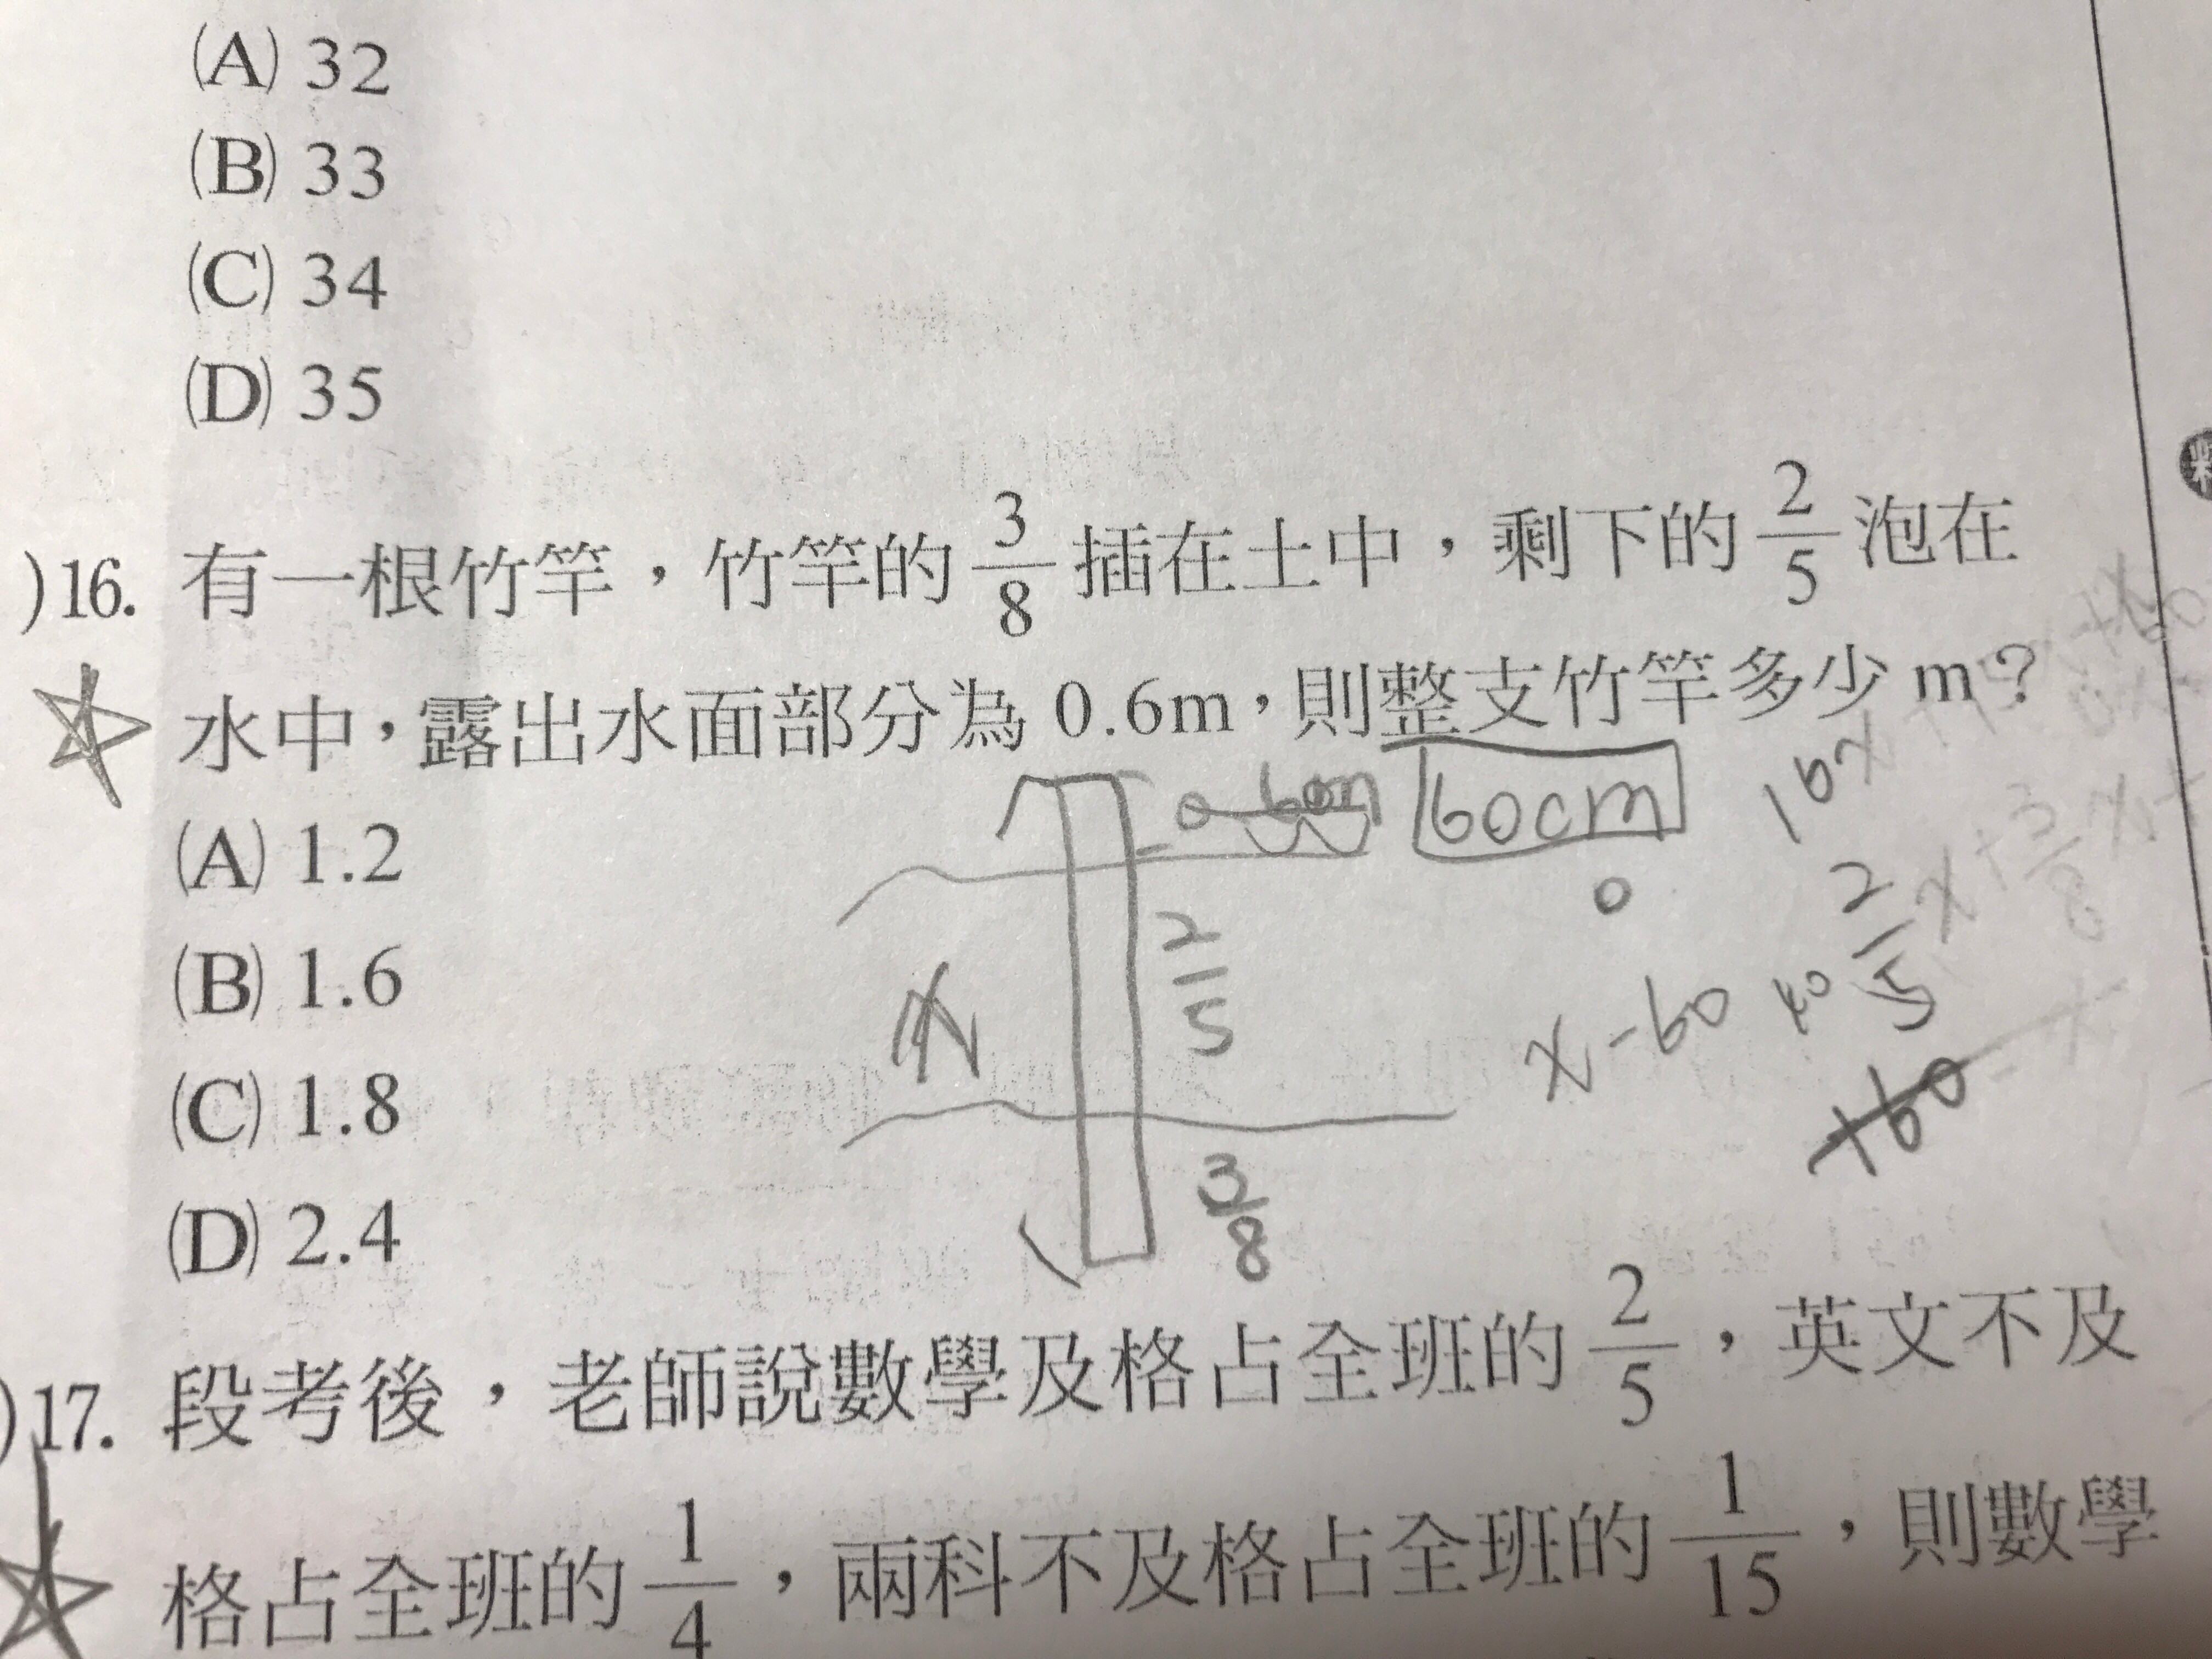 (A) 32
(B) 33
(C) 34
(D) 35
)16. 有一根竹竿，竹竿的 3/8 插在土中，剩下的 2/5 泡在
水中，露出水面部分為 0.6m，則整支竹竿多少 m？
60cm
(A) 1.2
(B) 1.6
(C) 1.8
(D) 2.4
2/5
x
3/8
x-60
2/5 x + 3/8
+60
)17. 段考後，老師說數學及格占全班的 2/5，英文不及
格占全班的 1/4，兩科不及格占全班的 1/15，則數學